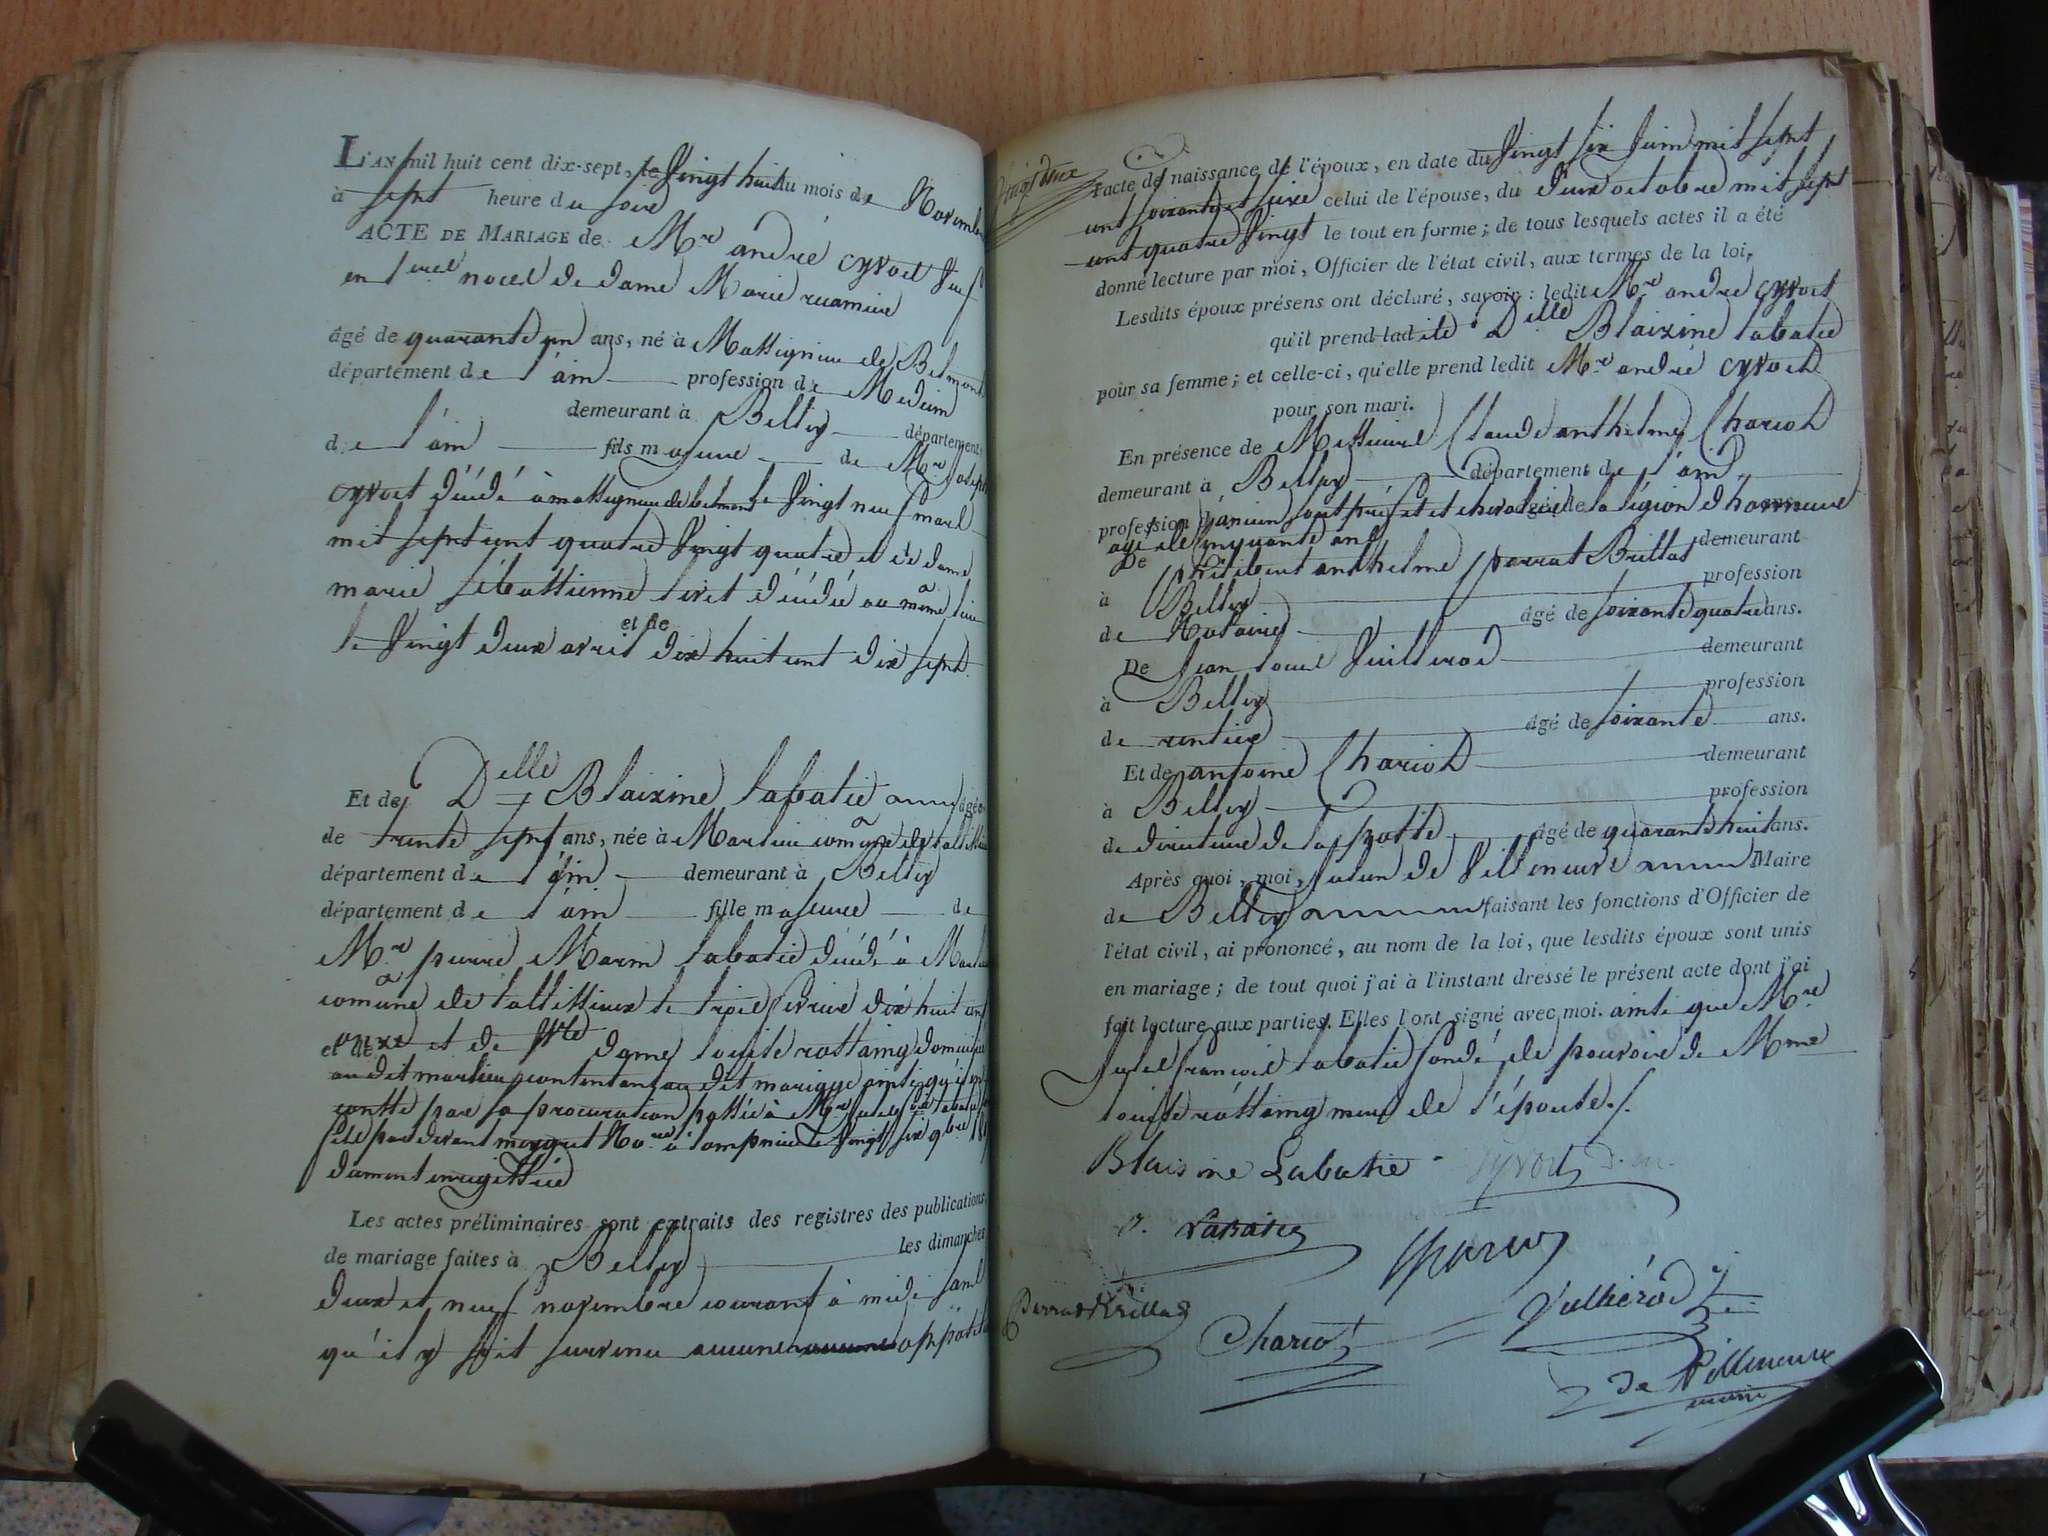 L'AN mil huit cent dix-sept, le Vingt huit du mois de Novembre
à sept heure du soir
ACTE DE MARIAGE de Mre andré cyvoct Veuf
en 1eres noces de dame Marie
âgé de quarante un ans, né à Massignieu de Belmont
département de l'ain profession de Medecin
demeurant à Belley département
de l'ain fils majeur de Mre Joseph
cyvoct décédé à massignieu de belmont le Vingt neuf mars
mil sept cent quatre Vingt quatre et de dame
marie sébastienne livet décédée au même lieu
le Vingt deux avril dix huit cent dix sept
et de
Et de Delle Blaizine labatie âgée
de trente sept ans, née à Marlieu comune de
département de l'ain demeurant à Belley
département de l'ain fille majeure de
Mre pierre Marin labatie décédé à Marlieu
comune de le trois fevrier dix huit cent
onze et de dame louise rostaing domiciliée
au dit marlieu contentant au dit mariage ainsi qu'il
conste par sa procuration passée à Mre Jules fois labatie
fils par devant Nore à le Vingt six 9bre
dument enregistrée
Les actes préliminaires sont extraits des registres des publications
de mariage faites à Belley les dimanches
deux et neuf novembre courant à midi sans
qu'il y soit survenu aucune opposition
Vingt deux
l'acte de naissance de l'époux, en date du Vingt six Juin mil sept
cent soixante et seize celui de l'épouse, du deux octobre mil sept
cent quatre Vingt le tout en forme; de tous lesquels actes il a été
donné lecture par moi, Officier de l'état civil, aux termes de la loi.
Lesdits époux présens ont déclaré, savoir: ledit Mre andré cyvoct
qu'il prend ladite Delle Blaizine labatie
pour sa femme; et celle-ci, qu'elle prend ledit Mre andré cyvoct
pour son mari.
En présence de Messieurs Claude anthelme Chariot
demeurant à Belley département de l'ain
profession d'ancien sous préfet et chevalier de la légion d'honneur
agé de cinquante ans
De anthelme perrat Brillat demeurant
à Belley profession
de Notaire âgé de soixante quatre ans.
De Jean louis Vuillerod demeurant
à Belley profession
de rentier âgé de soixante ans.
Et de antoine Chariot demeurant
à Belley profession
de directeur de la poste âgé de quarante huit ans.
Après quoi, moi, de Villeneuve Maire
de Belley faisant les fonctions d'Officier de
l'état civil, ai prononcé, au nom de la loi, que lesdits époux sont unis
en mariage; de tout quoi j'ai à l'instant dressé le présent acte dont j'ai
fait lecture aux parties. Elles l'ont signé avec moi. ainsi que Mre
Jules françois labatie fondé de pouvoir de Mme
louise rostaing mere de l'épouse
Blaisine Labatie Cyvoct D. m.
Labatie
Perrat Brillat
Chariot
Vulliérod
De Villeneuve
maire